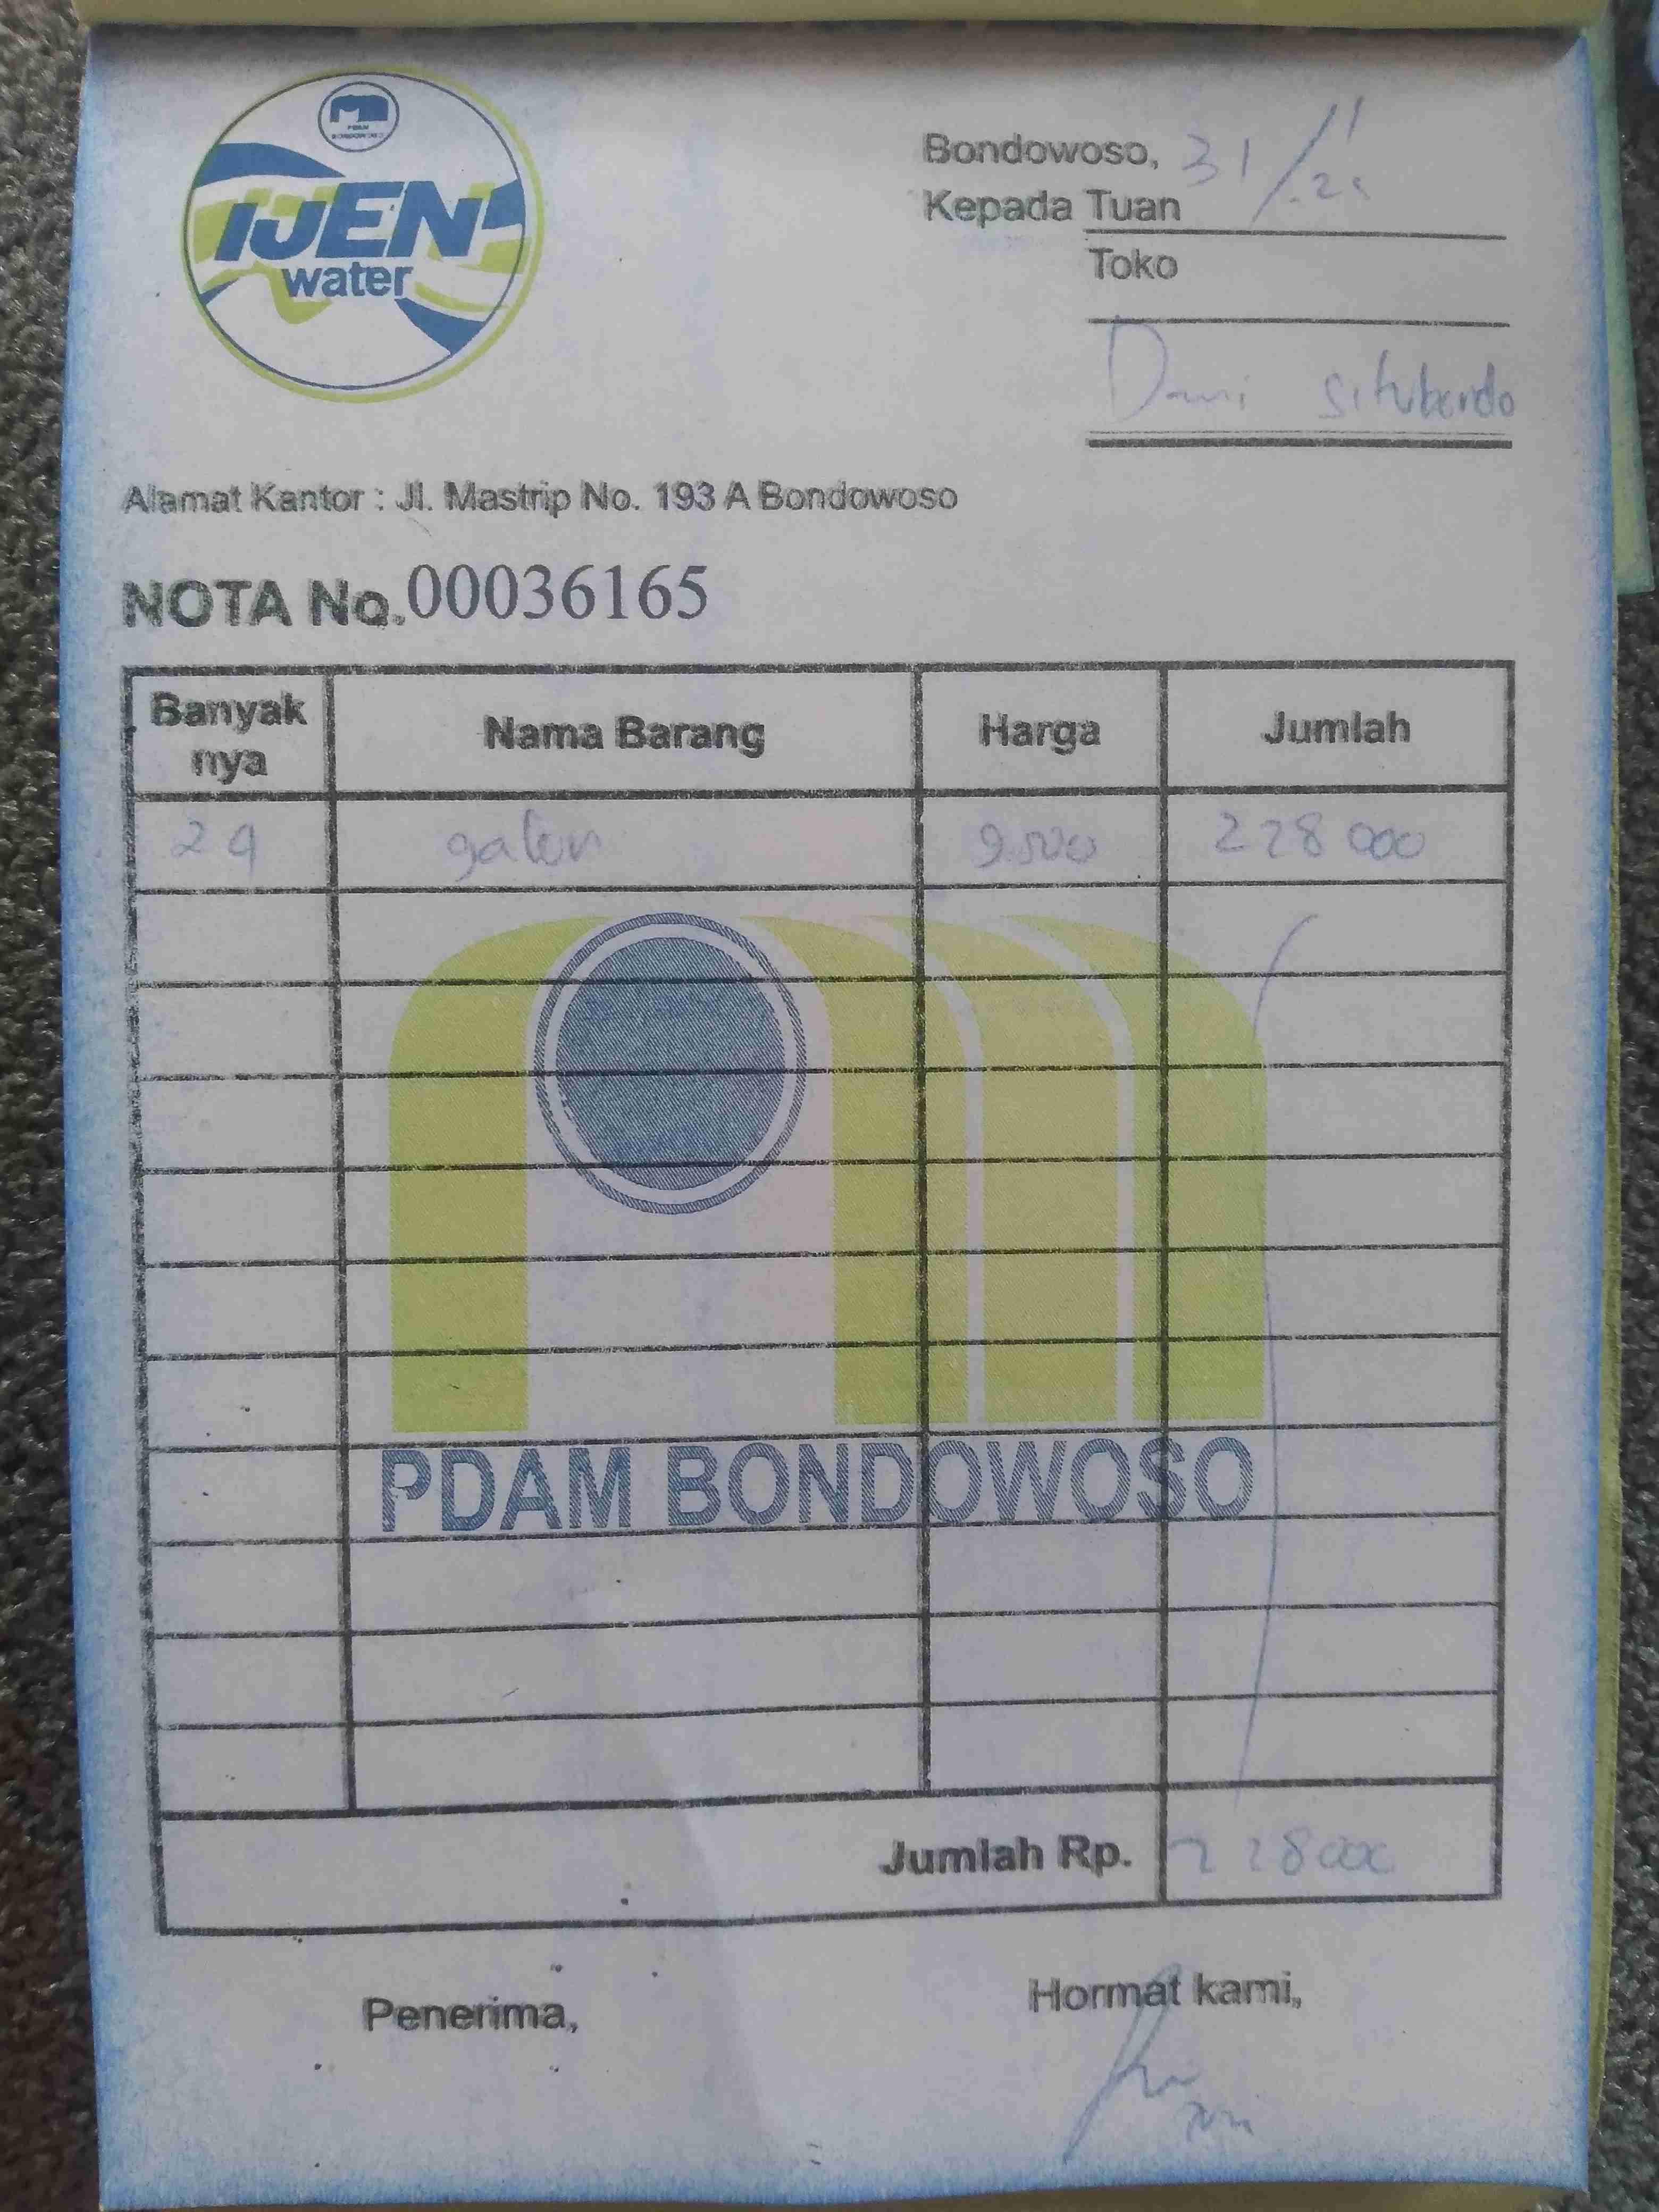 PDAM
BONDOWOSO
IJEN
water
Bondowoso, 31/1
Kepada Tuan
Toko
Situbondo
Alamat Kantor : Jl. Mastrip No. 193 A Bondowoso
NOTA No. 00036165
Banyak nya Nama Barang Harga Jumlah
24 galon 9.500 228 000
PDAM BONDOWOSO
Jumlah Rp. 228 000
Penerima,
Hormat kami,